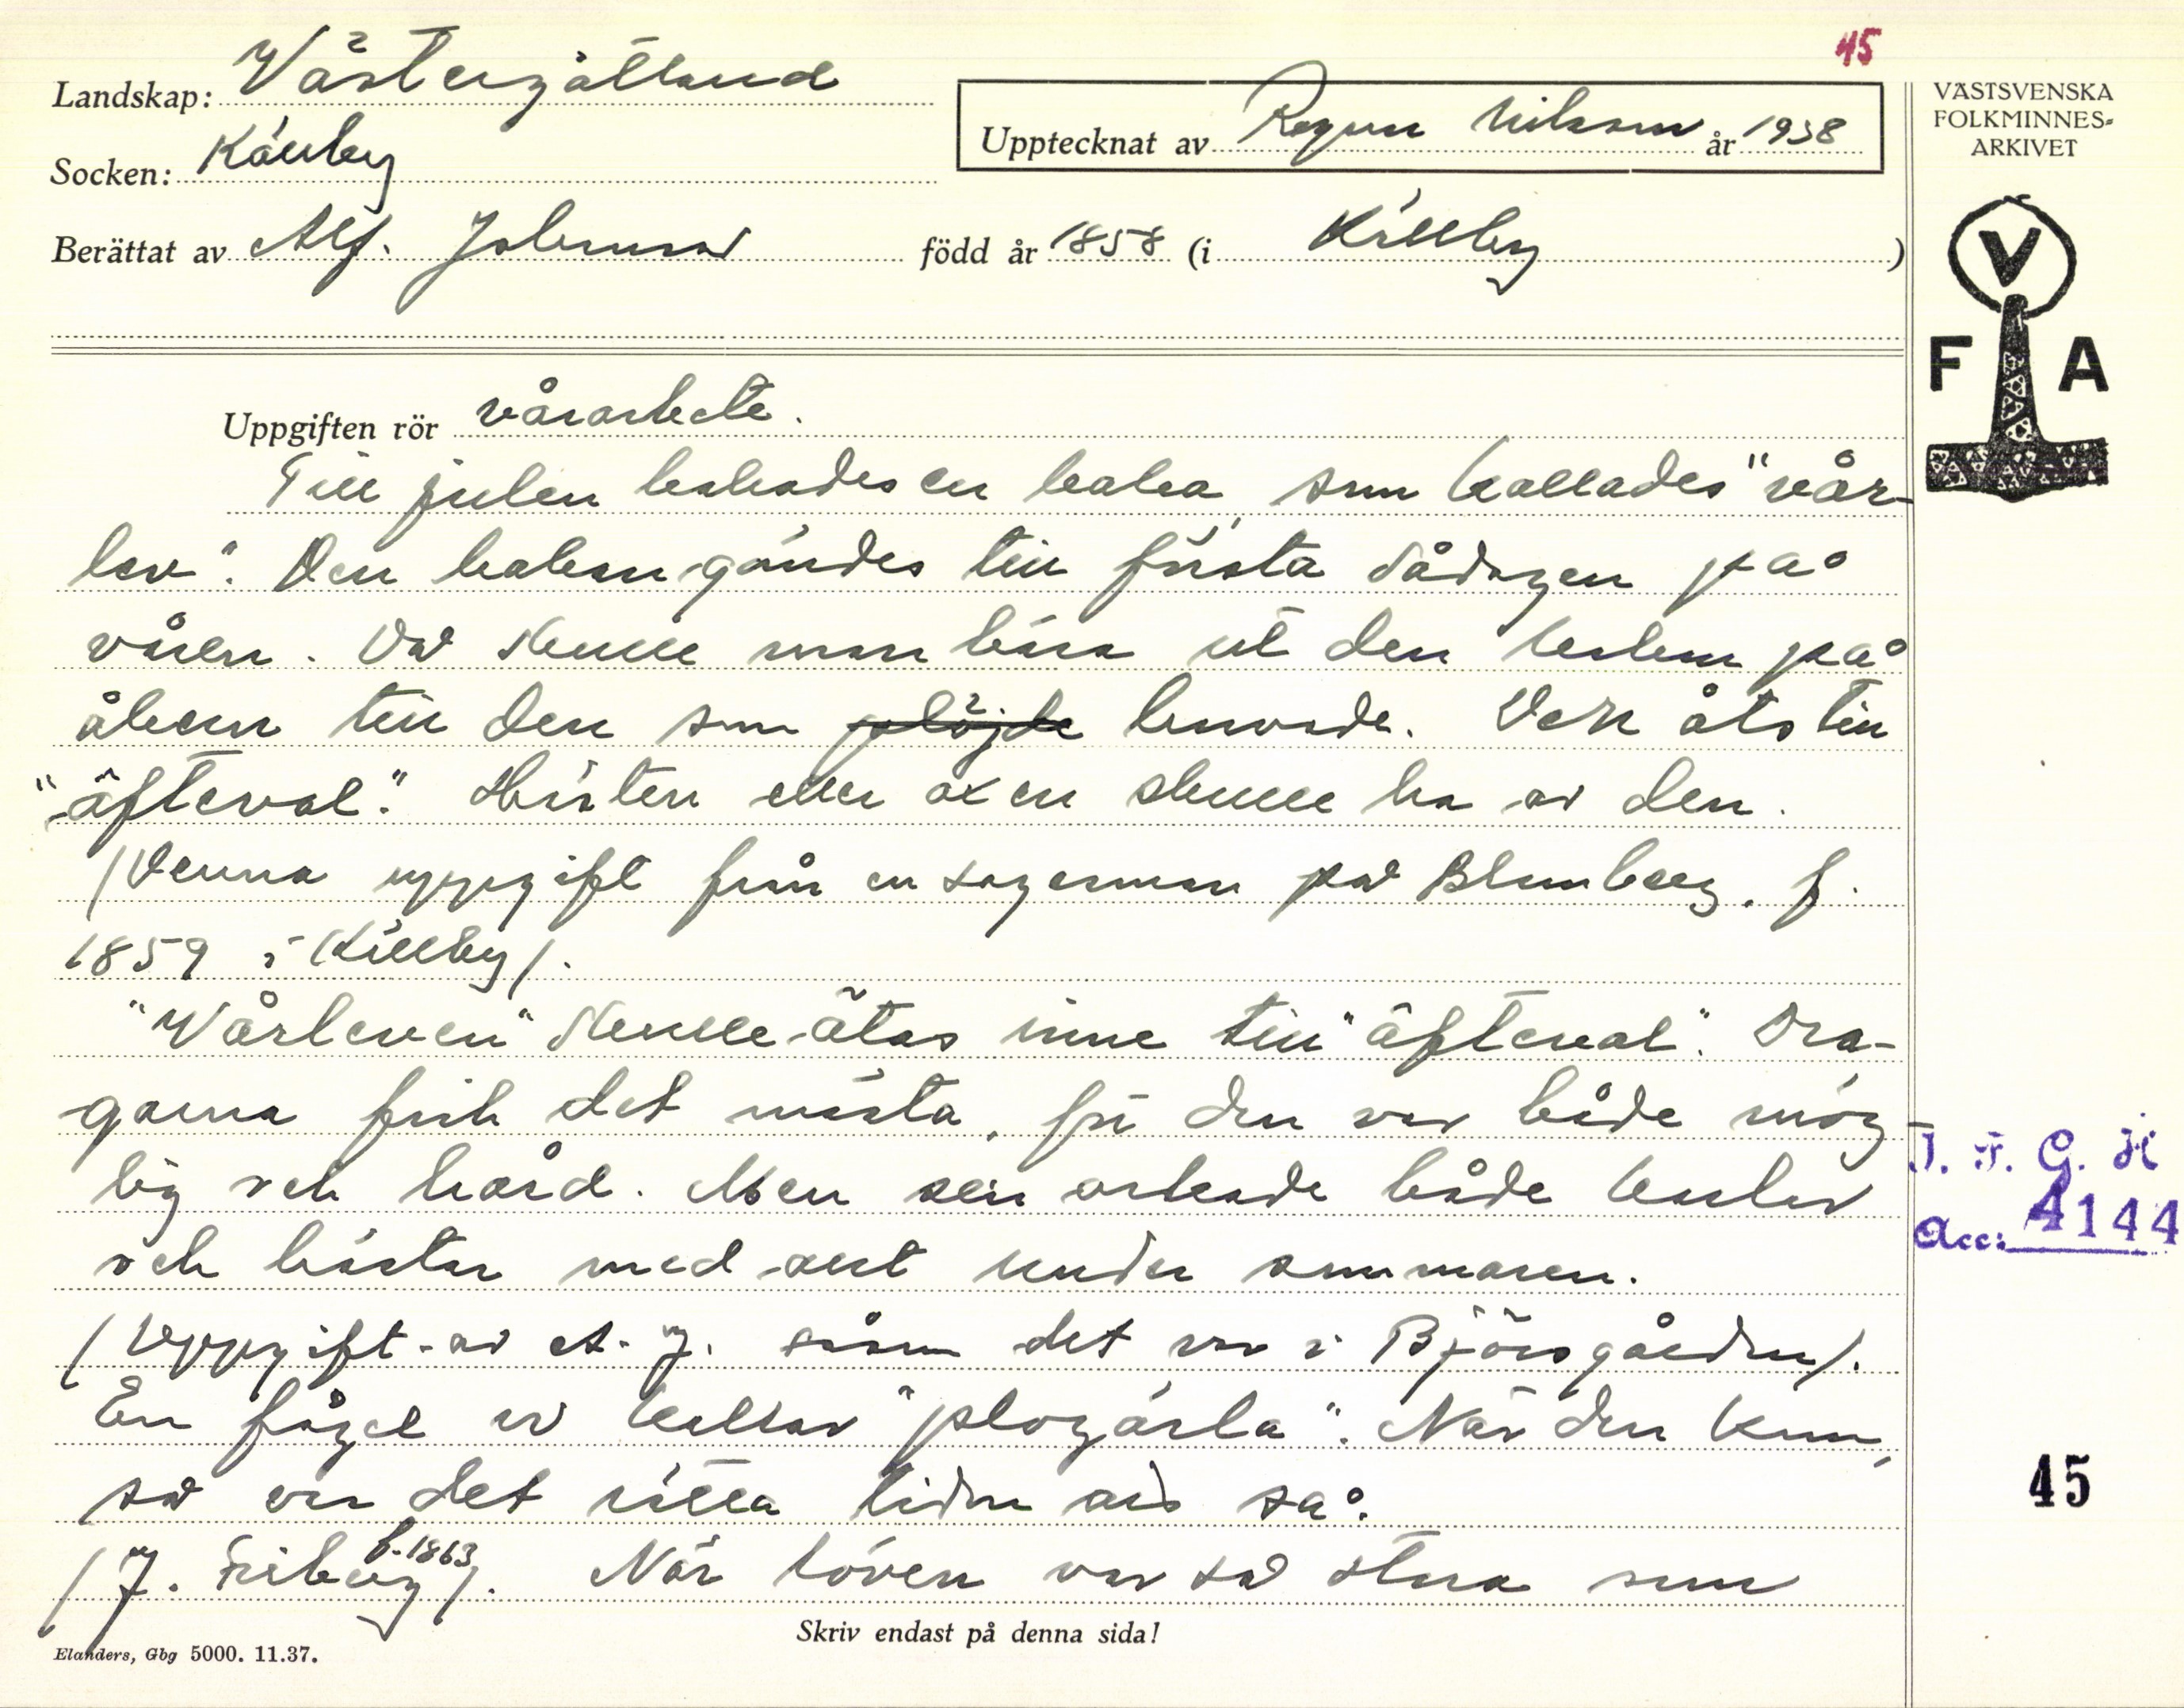 45
Landskap: Västergötland
Socken: Källby
Upptecknat av Ragnar Nilsson år 1938
Berättat av Alf. Johansson född år 1858 (i Källby)
VÄSTSVENSKA
FOLKMINNES-
ARKIVET
V
F A
Uppgiften rör vårarbete.
Till julen bakades en kaka, som kallades "vår-
lev". Den kakan gömdes till första sådagen på
våren. Då skulle man bära ut den kakan på
åkern till den som plöjde harvade. Den åts till
"äfteval". Hästen eller oxen skulle ha av den.
(Denna uppgift från en sagesman på Blomberg, f.
1859 i Källby).
"Vårleven" skulle ätas inne till "äfteval". Dra-
garna fick det mesta, för den var både mög-
lig och hård. Men sen orkade både karlar
och hästar med allt under sommaren.
(Uppgift av A. J. såsom det var i Björsgården).
En fågel vi kallar "plogärla". När den kom,
så var det rätta tiden att så.
(J. Friberg f. 1863). När löven var så stora som
Skriv endast på denna sida!
Elanders, Gbg 5000. 11.37.
I. F. G. H
Acc: 4144
45